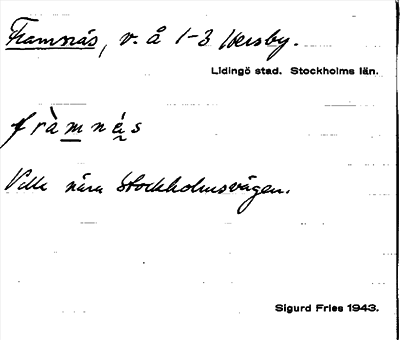 Framnäs, v. å 1-3 Hersby.
Lidingö stad. Stockholms län.
fràmnä́s
Villa nära Stockholmsvägen.
Sigurd Fries 1943.